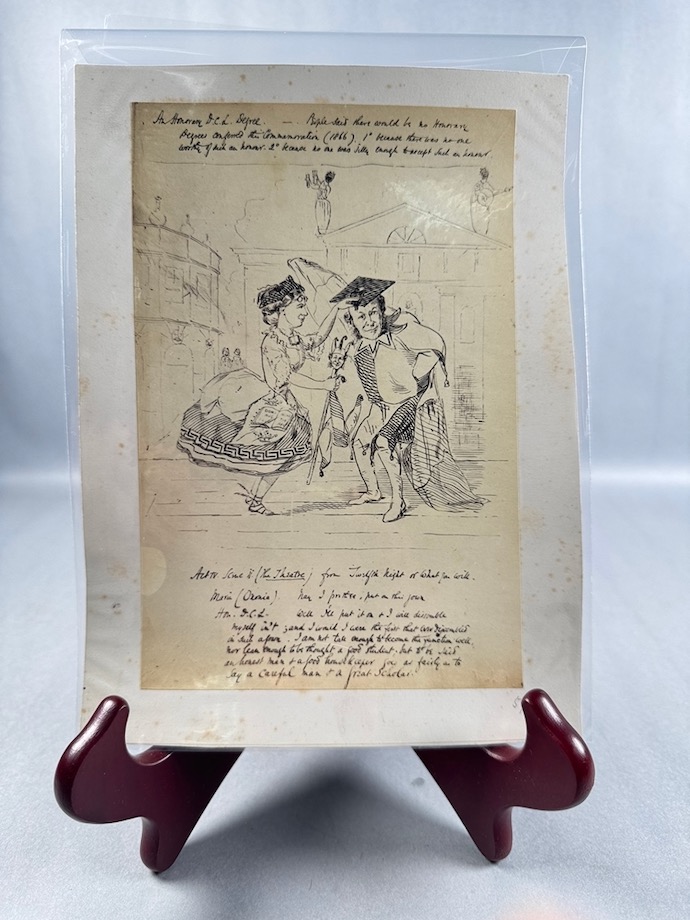 An Honorary D.C.L. Degree. — People said there would be no Honorary
Degrees conferred this Commemoration (1866), 1º because there was no one
worthy of such an honour. 2º because no one was silly enough to accept such an honour.
Act IV Scene II (The Theatre) from Twelfth Night or What you Will.
Maria (Oxonia) Nay I prithee, put on this gown
Hon. D.C.L. Well I'll put it on & I will dissemble
myself in't, and I would I were the first that ever dissembled
in such a gown. I am not tall enough to become the function well,
nor lean enough to be thought a good student. but to be said
an honest man & a good housekeeper goes as fairly as to
say a careful man & a great scholar.